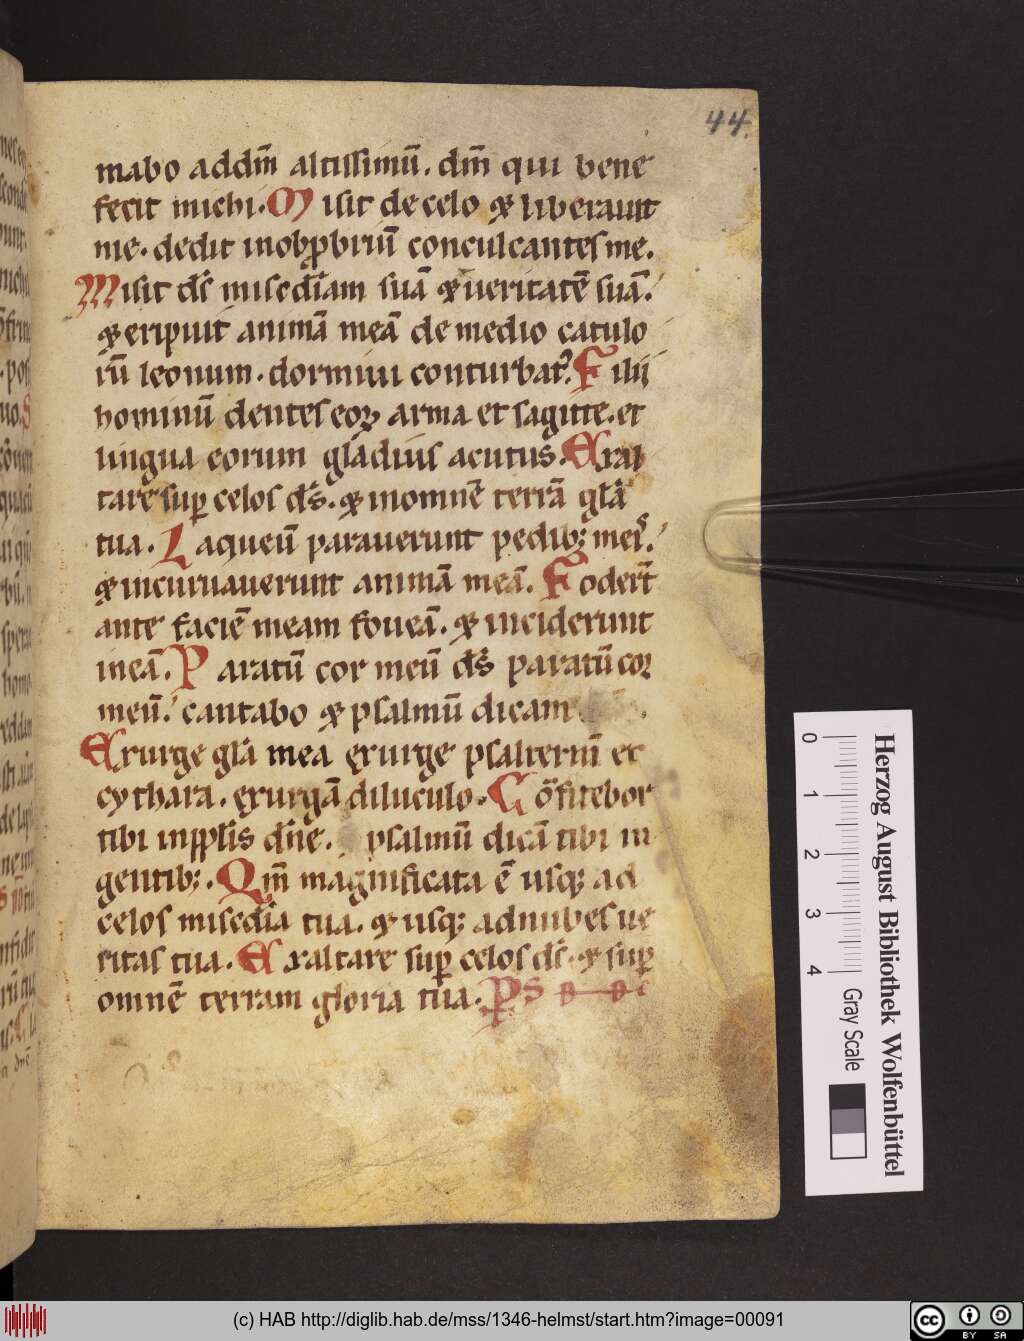 44.
mabo addm̄ altissimū. dm̄ qui bene
fecit michi. Misit de celo & liberauit
me. dedit inobprbriū conculcantes me.
Misit ds̄ misc̄diam suā & ueritatē suā.
& eripuit animā meā de medio catulo
rū leonum. dormiui conturbat᷒. Filii
hominū dentes eoꝝ arma et sagitte. et
lingua eorum gladius acutus. Exal
tare suꝑ celos ds̄. & inomnē terrā gl̄a
tua. Laqueū parauerunt pedib; meis.
& incuruauerunt animā meā. Fodert̄
ante faciē meam foueā. & inciderunt
ineā. Paratū cor meū ds̄ paratū cor
meū. cantabo & psalmū dicam
Exurge gl̄a mea exurge psalteriū et
cythara. exurgā diluculo. Cōfitebor
tibi inppl̄is dn̄e. psalmū dicā tibi in
gentib;. Qm̄ magnificata ē usq; ad
celos misc̄dia tua. & usq; adnubes ue
ritas tua. Exaltare suꝑ celos ds̄. & suꝑ
omnē terram gloria tua. Ps̄
Herzog August Bibliothek Wolfenbüttel
0 1 2 3 4 Gray Scale
(c) HAB http://diglib.hab.de/mss/1346-helmst/start.htm?image=00091
cc BY SA